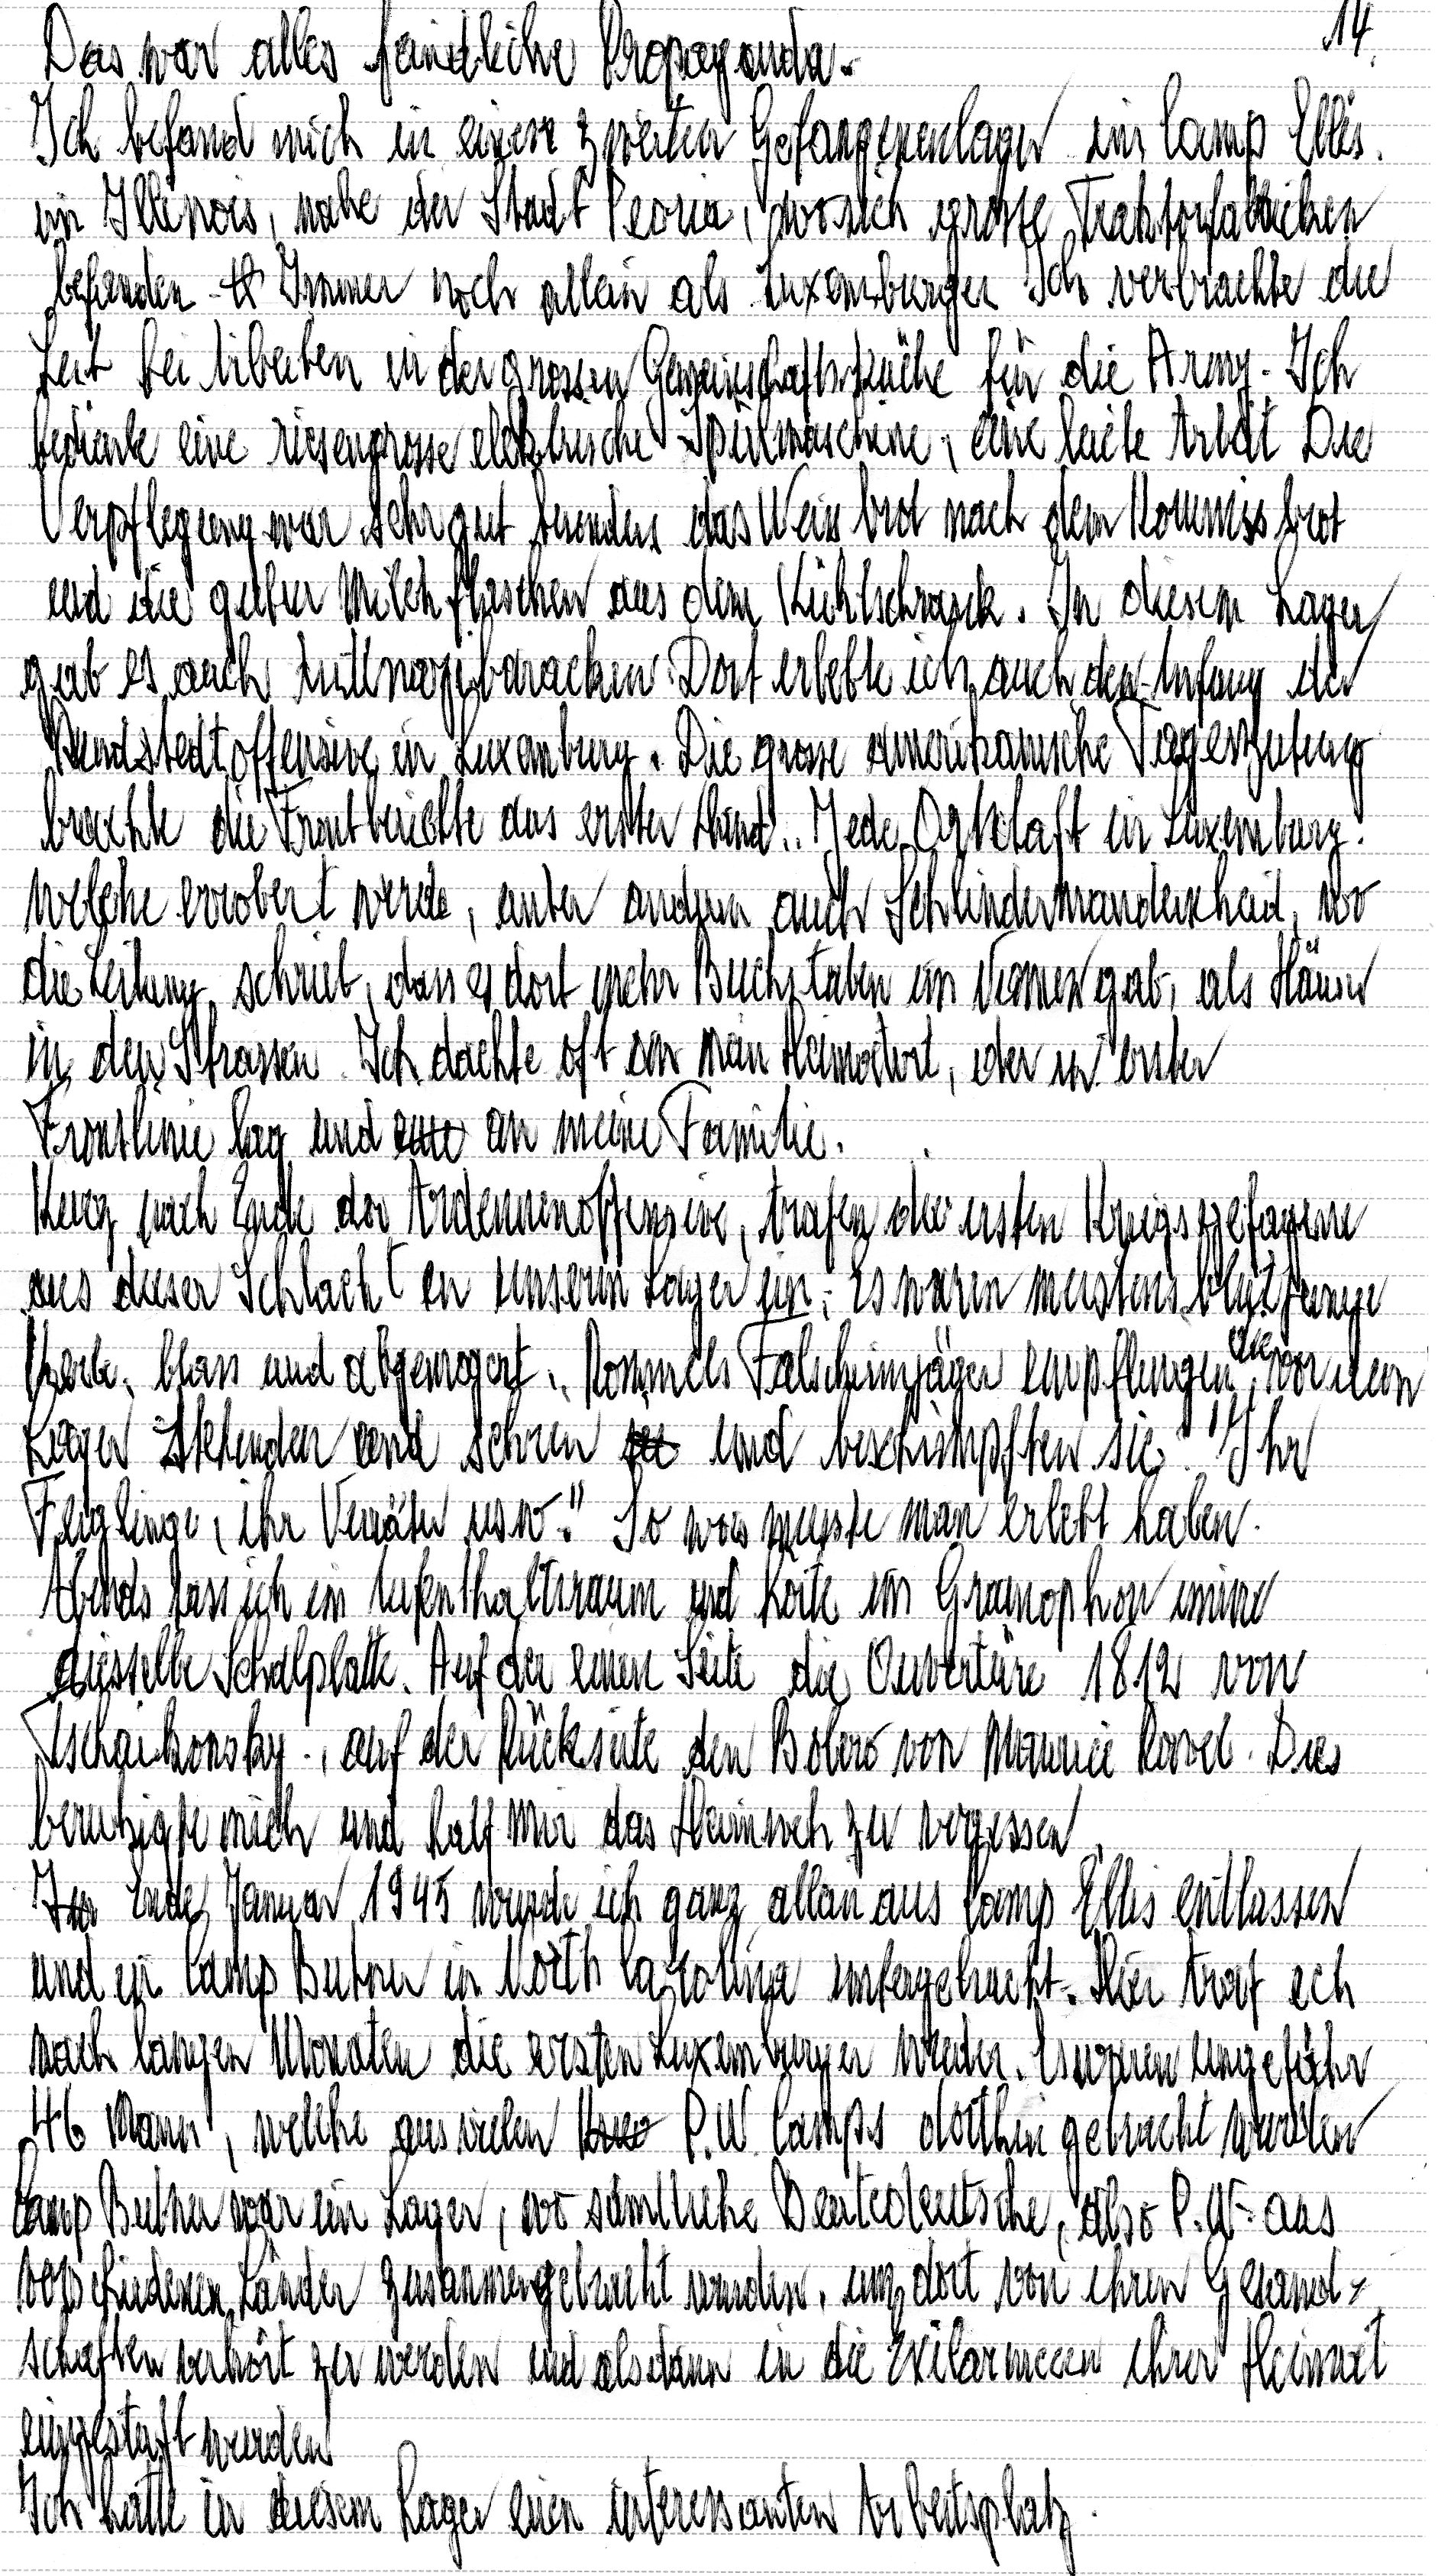 14.
Das war alles feindliche Propaganda.
Ich befand mich in einem zweiten Gefangenenlager im Camp Ellis.
in Illinois, nahe der Stadt Peoria, wo sich grosse Traktorfabriken
befanden. Immer noch allein als Luxemburger Ich verbrachte die
Zeit bei Arbeiten in der grossen Gemeinschaftsküche für die Army. Ich
bediente eine riesengrosse elektrische Spülmaschine, eine leichte Arbeit Die
Verpflegung war sehr gut besonders das Weissbrot nach dem Kommissbrot
und die guten Milchflaschen aus dem Kühlschrank. In diesem Lager
gab es auch Antinazibaracken. Dort erlebte ich auch den Anfang der
Rundstedtoffensive in Luxemburg. Die grosse amerikanische Tageszeitung
brachte die Frontberichte aus erster Hand. Jede Ortschaft in Luxemburg
welche erobert wurde, unter andern auch Schlindermanderscheid, wo
die Zeitung schrieb, dass es dort mehr Buchstaben im Namen gab, als Häuser
in den Strassen. Ich dachte oft an mein Heimatort, der in erster
Frontlinie lag und an meine Familie.
Kurz nach Ende der Ardennenoffensive, trafen die ersten Kriegsgefangene
aus dieser Schlacht in unserem Lager ein. Es waren meistens blutjunge
Kerle, blass und abgemagert. Rommels Falschirmjäger empfingen die vor dem
Lager stehenden und schrien und beschimpften sie. "Ihr
Feiglinge, ihr Verräter usw." So was musste man erlebt haben.
Abends sass ich im Aufenthaltsraum und hörte im Gramophon immer
dieselbe Schalplatte. Auf der einen Seite die Ouvertüre 1812 von
Tschaikowsky, auf der Rückseite den Bolero von Maurice Ravel. Dies
beruhigte mich und half mir das Heimweh zu vergessen.
Ende Januar 1945 wurde ich ganz allein aus Camp Ellis entlassen
und in Camp Butner in North Carolina untergebracht. Hier traf ich
nach langen Monaten die ersten Luxemburger wieder. Es waren ungefähr
46 Mann, welche aus vielen P.W. Camps dorthin gebracht wurden
Camp Butner war ein Lager, wo sämtliche Beutedeutsche, also P.W. aus
verschiedenen Länder zusammengebracht wurden, um dort von ihren Gesand-
schaften verhört zu werden und alsdann in die Exilarmeen ihrer Heimat
eingestuft wurden
Ich hatte in diesem Lager einen interessanten Arbeitsplatz.